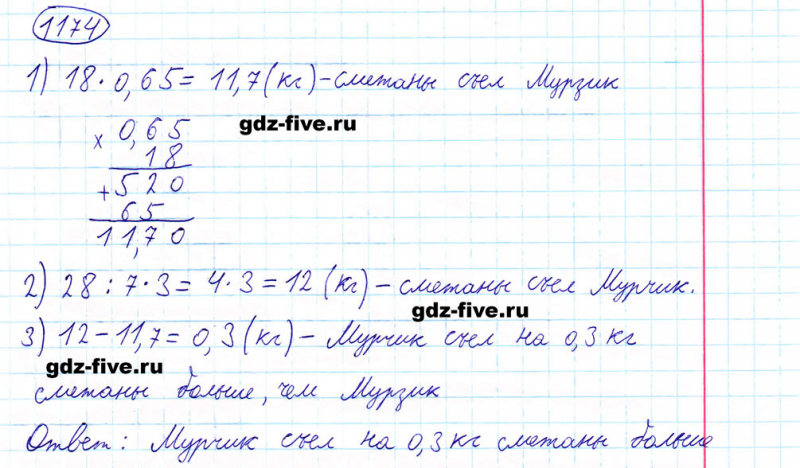 1174
1) 18 · 0,65 = 11,7 (кг) – сметаны съел Мурзик
× 0,65
gdz-five.ru
18
+ 520
65
11,70
2) 28 : 7 · 3 = 4 · 3 = 12 (кг) – сметаны съел Мурчик.
gdz-five.ru
3) 12 – 11,7 = 0,3 (кг) – Мурчик съел на 0,3 кг
gdz-five.ru
сметаны больше, чем Мурзик
Ответ: Мурчик съел на 0,3 кг сметаны больше